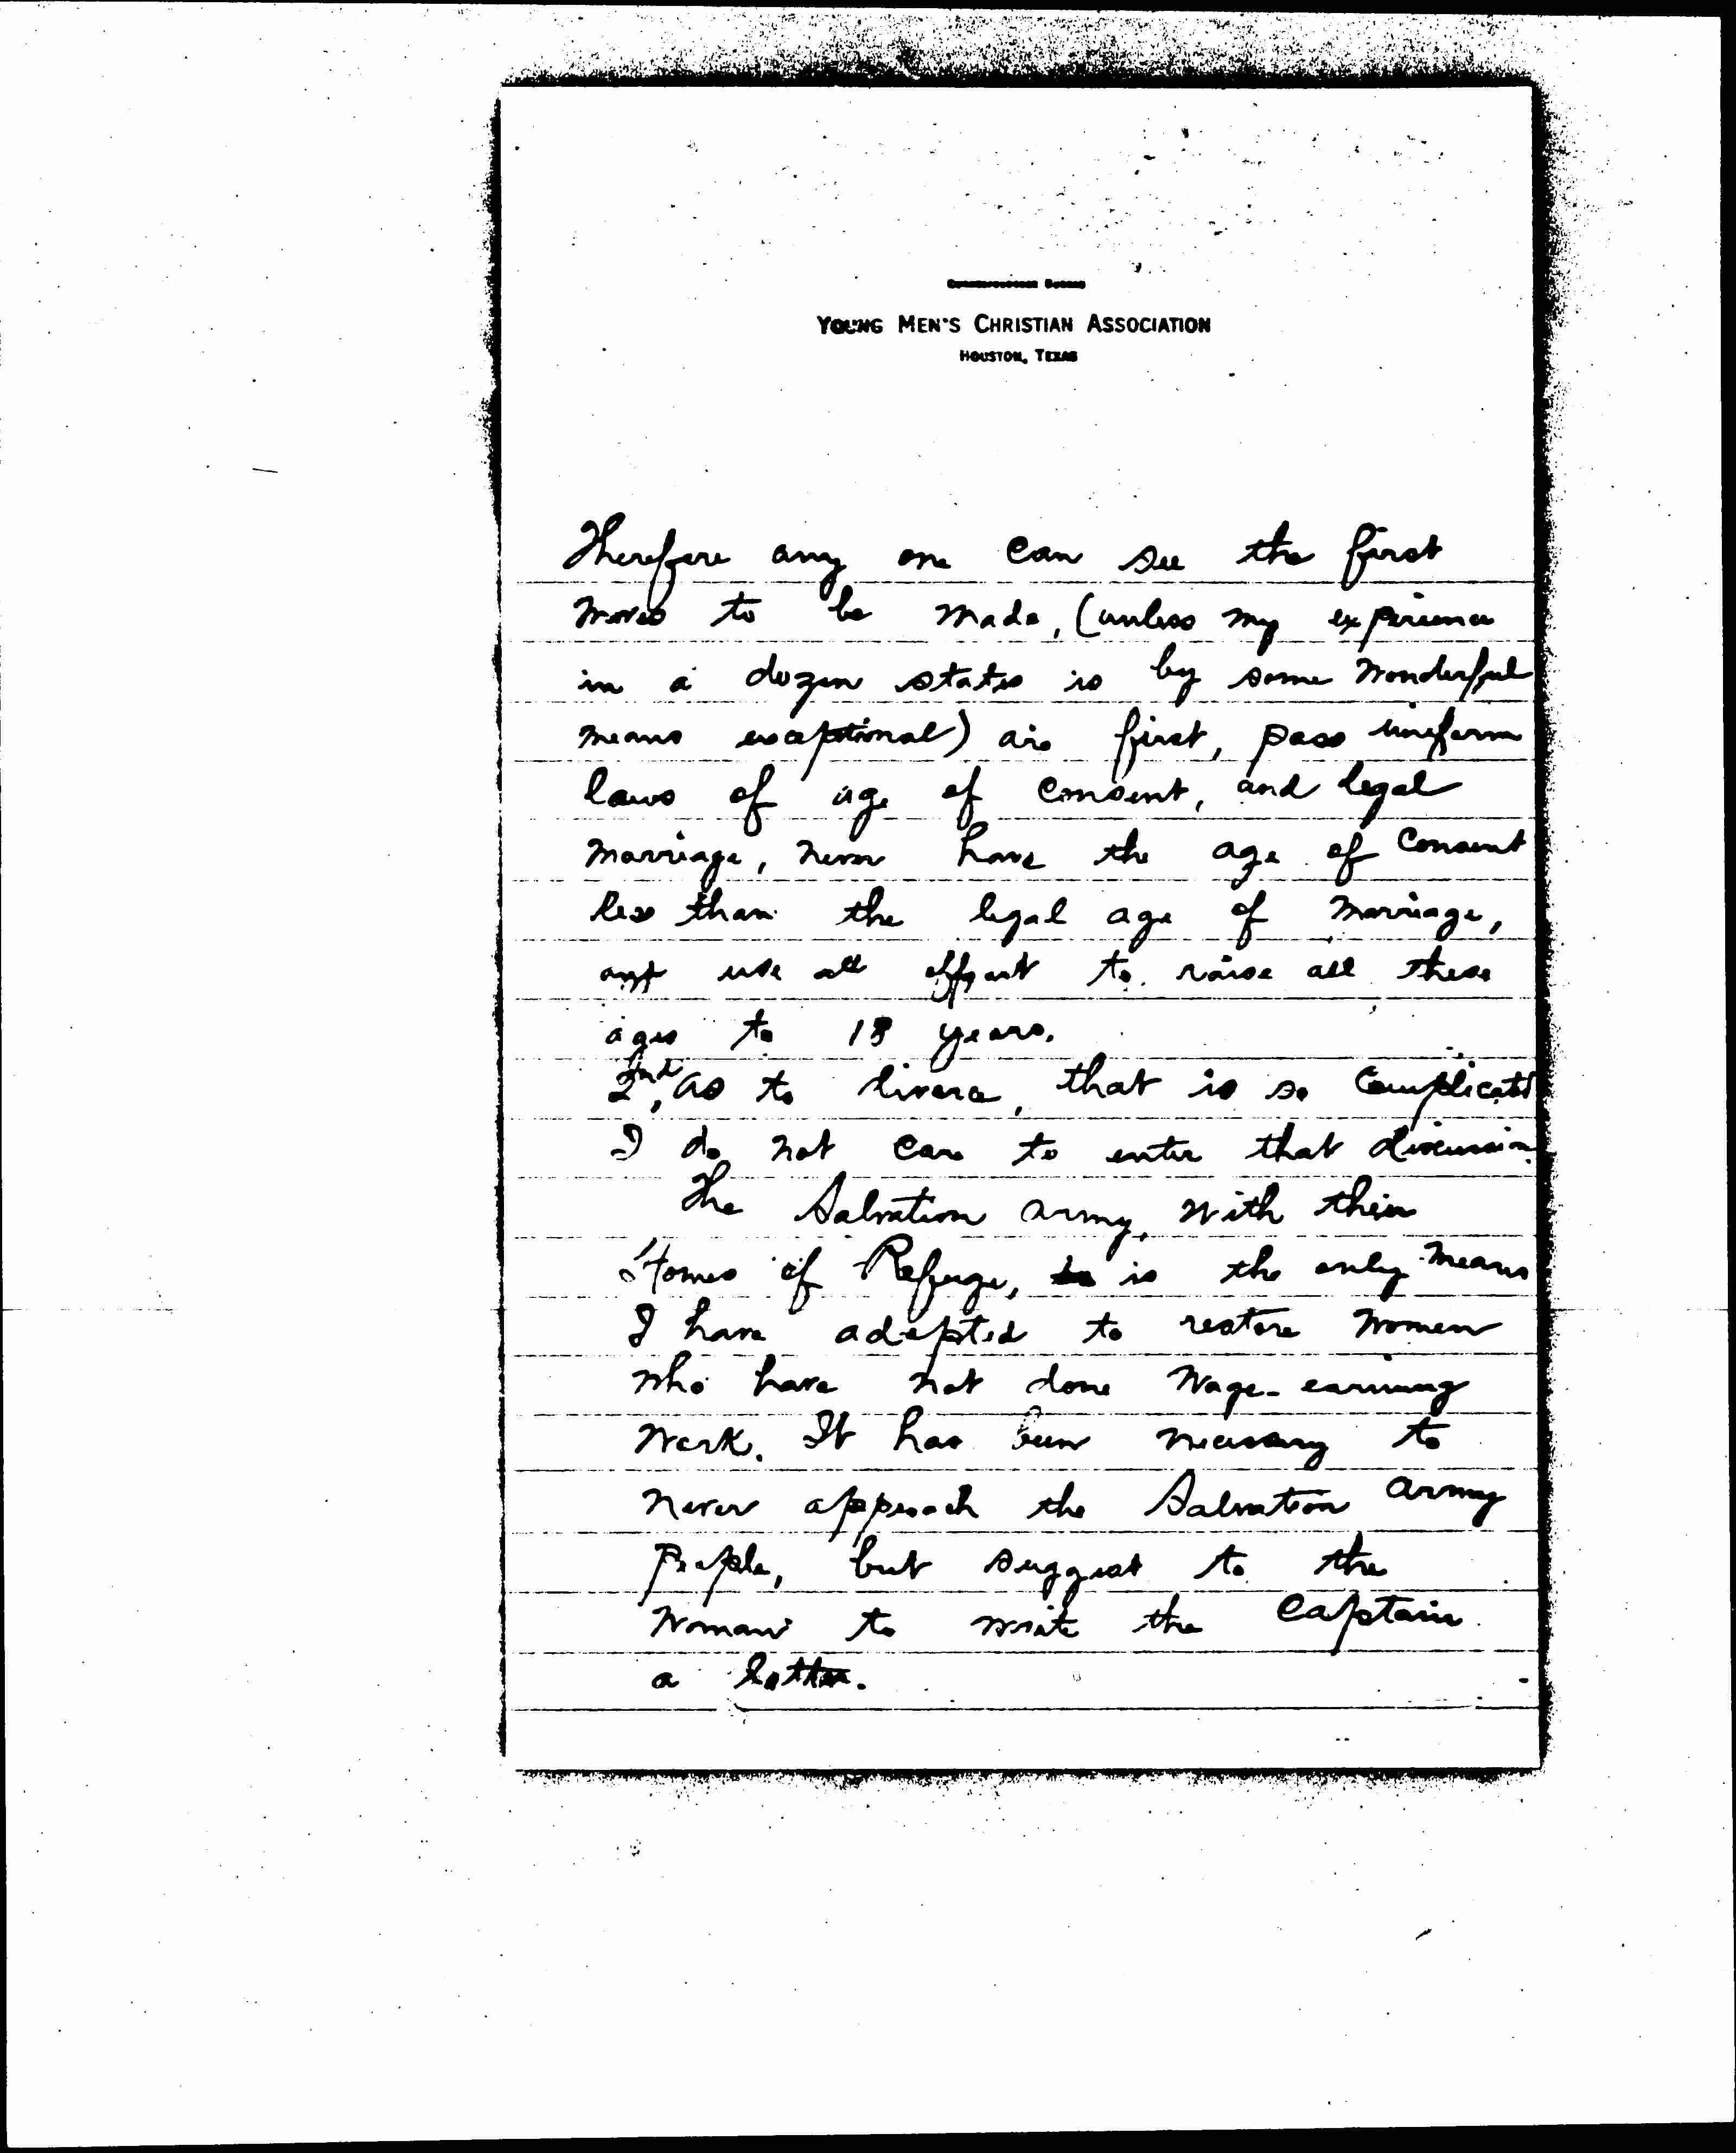 Correspondence Bureau
YOUNG MEN'S CHRISTIAN ASSOCIATION
HOUSTON, TEXAS
Therefore any one can see the first
moves to be made, (unless my experience
in a dozen states is by some wonderful
means exceptional) are first, pass uniform
laws of age of consent, and legal
marriage, never have the age of consent
less than the legal age of marriage,
and use all effort to raise all these
ages to 18 years.
2nd, as to divorce, that is so complicated
I do not care to enter that discussion.
The Salvation Army, with their
Homes of Refuge, is the only means
I have adopted to restore women
who have not done wage-earning
work. It has been necessary to
never approach the Salvation Army
people, but suggest to the
woman to write the Captain
a letter.